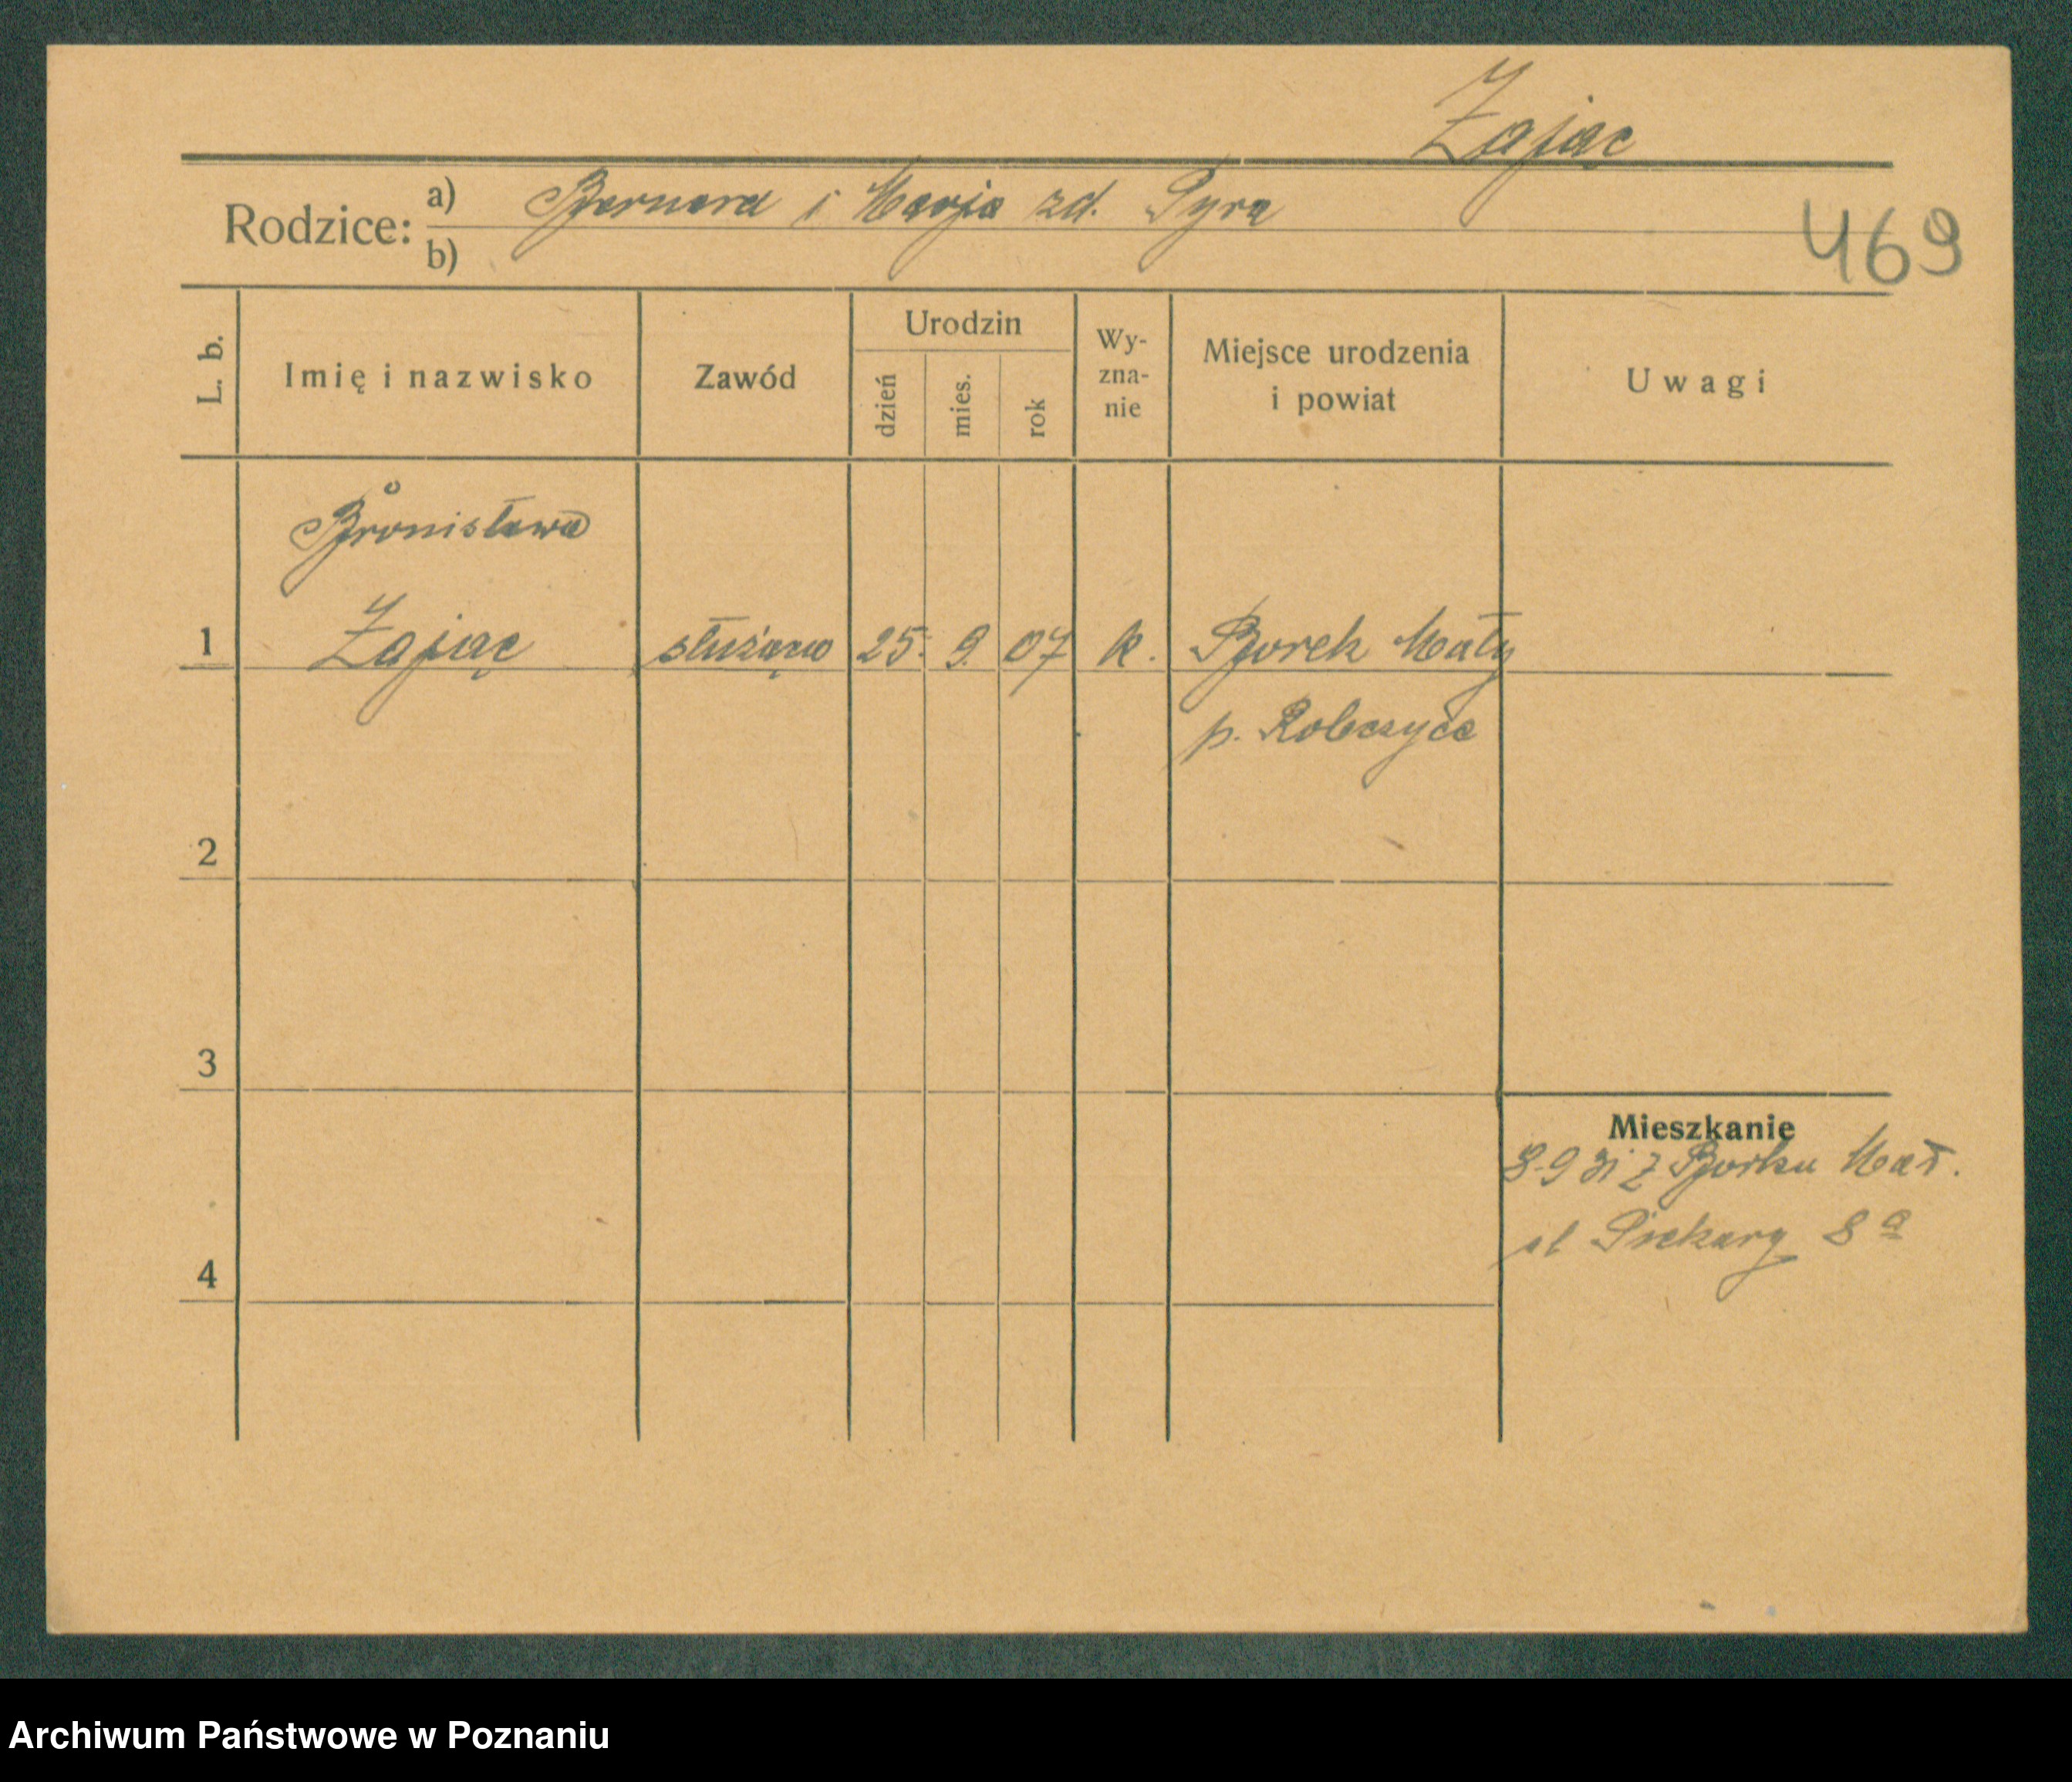 Zając
Rodzice: a) Bernard i Marja zd. Pyra
b)
469
L. b. Imię i nazwisko Zawód Urodzin dzień mies. rok Wy-zna-nie Miejsce urodzenia i powiat Uwagi
Bronisława
1 Zając służąca 25. 9. 07 k. Borek Mały
p. Robczyce
2
3
Mieszkanie
8-9 31 z Borku Mał.
Piekary 8a
4
Archiwum Państwowe w Poznaniu